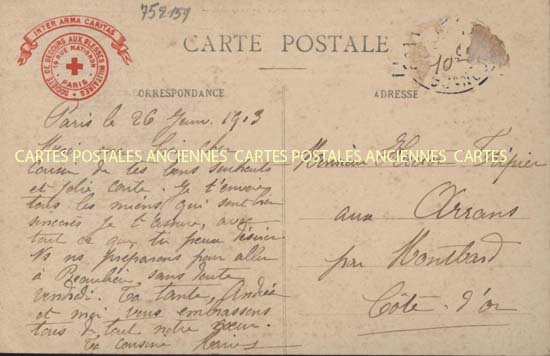 752159
INTER ARMA CARITAS
SOCIÉTÉ DE SECOURS AUX BLESSÉS MILITAIRES
19 RUE MATIGNON
PARIS
CARTE POSTALE
CORRESPONDANCE
ADRESSE
Paris le 26 1913
Merci mon
CARTES POSTALES ANCIENNES CARTES POSTALES ANCIENNES CARTES
cousin de tes bons souhaits
et jolie carte. Je t'envoie
tous les miens qui sont bien
sincères je t'assure, avec
tout ce que tu peux désirer
Ns ns préparons pour aller
à Beaulieu sans doute
vendredi. Ta tante, Andrée
et moi vous embrassons
tous de tout notre cœur.
Ta cousine
Monsieur
aux Arrans
par Montbard
Côte-d'or